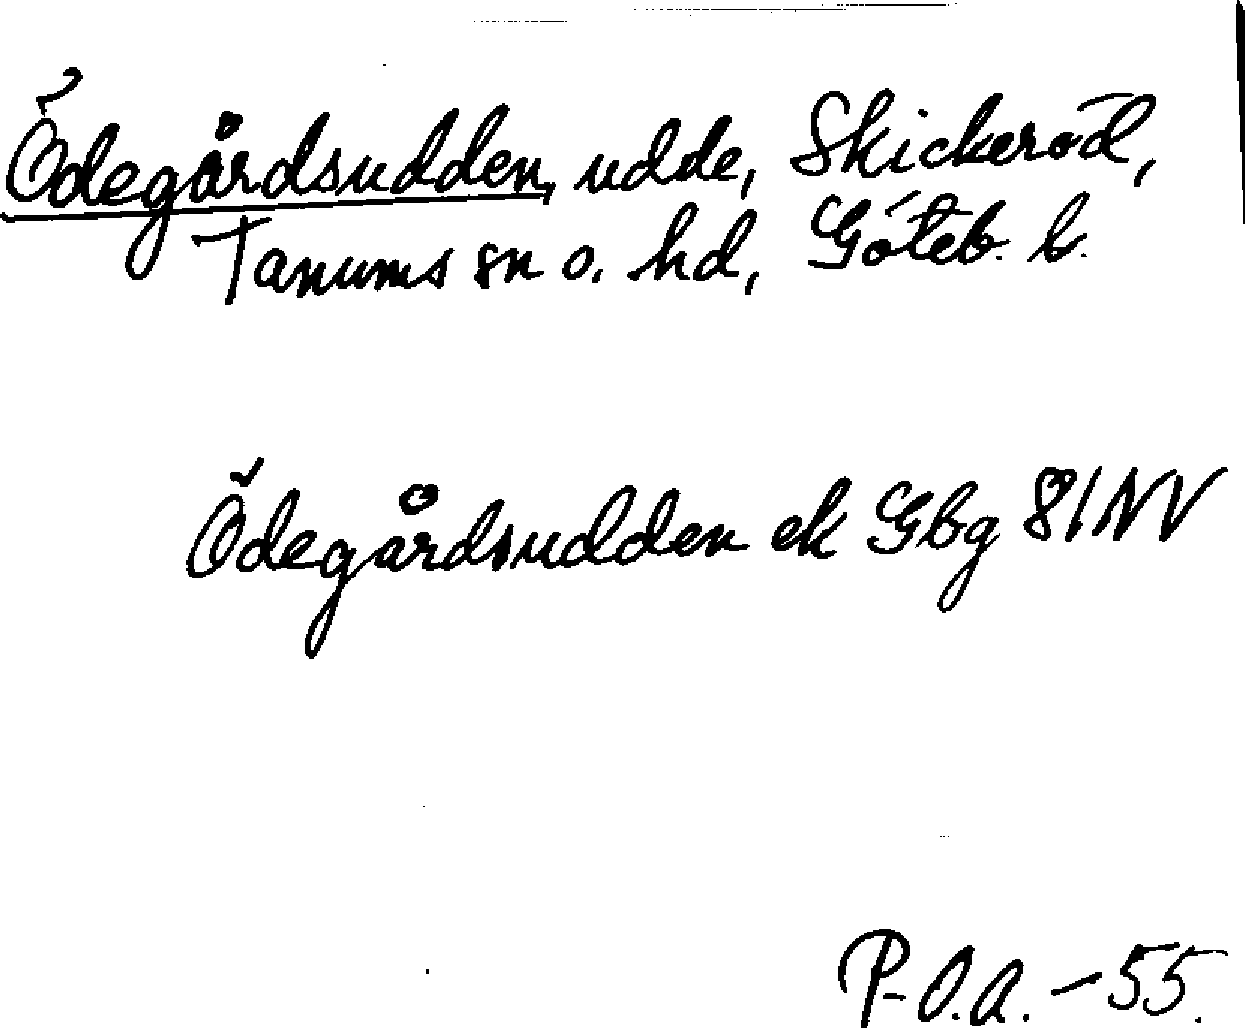 Ödegårdsudden, udde, Skickeröd,
Tanums sn o. hd, Göteb. b.
Ödegårdsudden ek Gbg 81NV
P-O.A. -55.